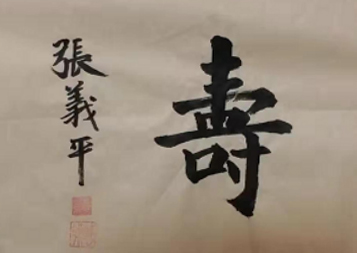 壽
張義平